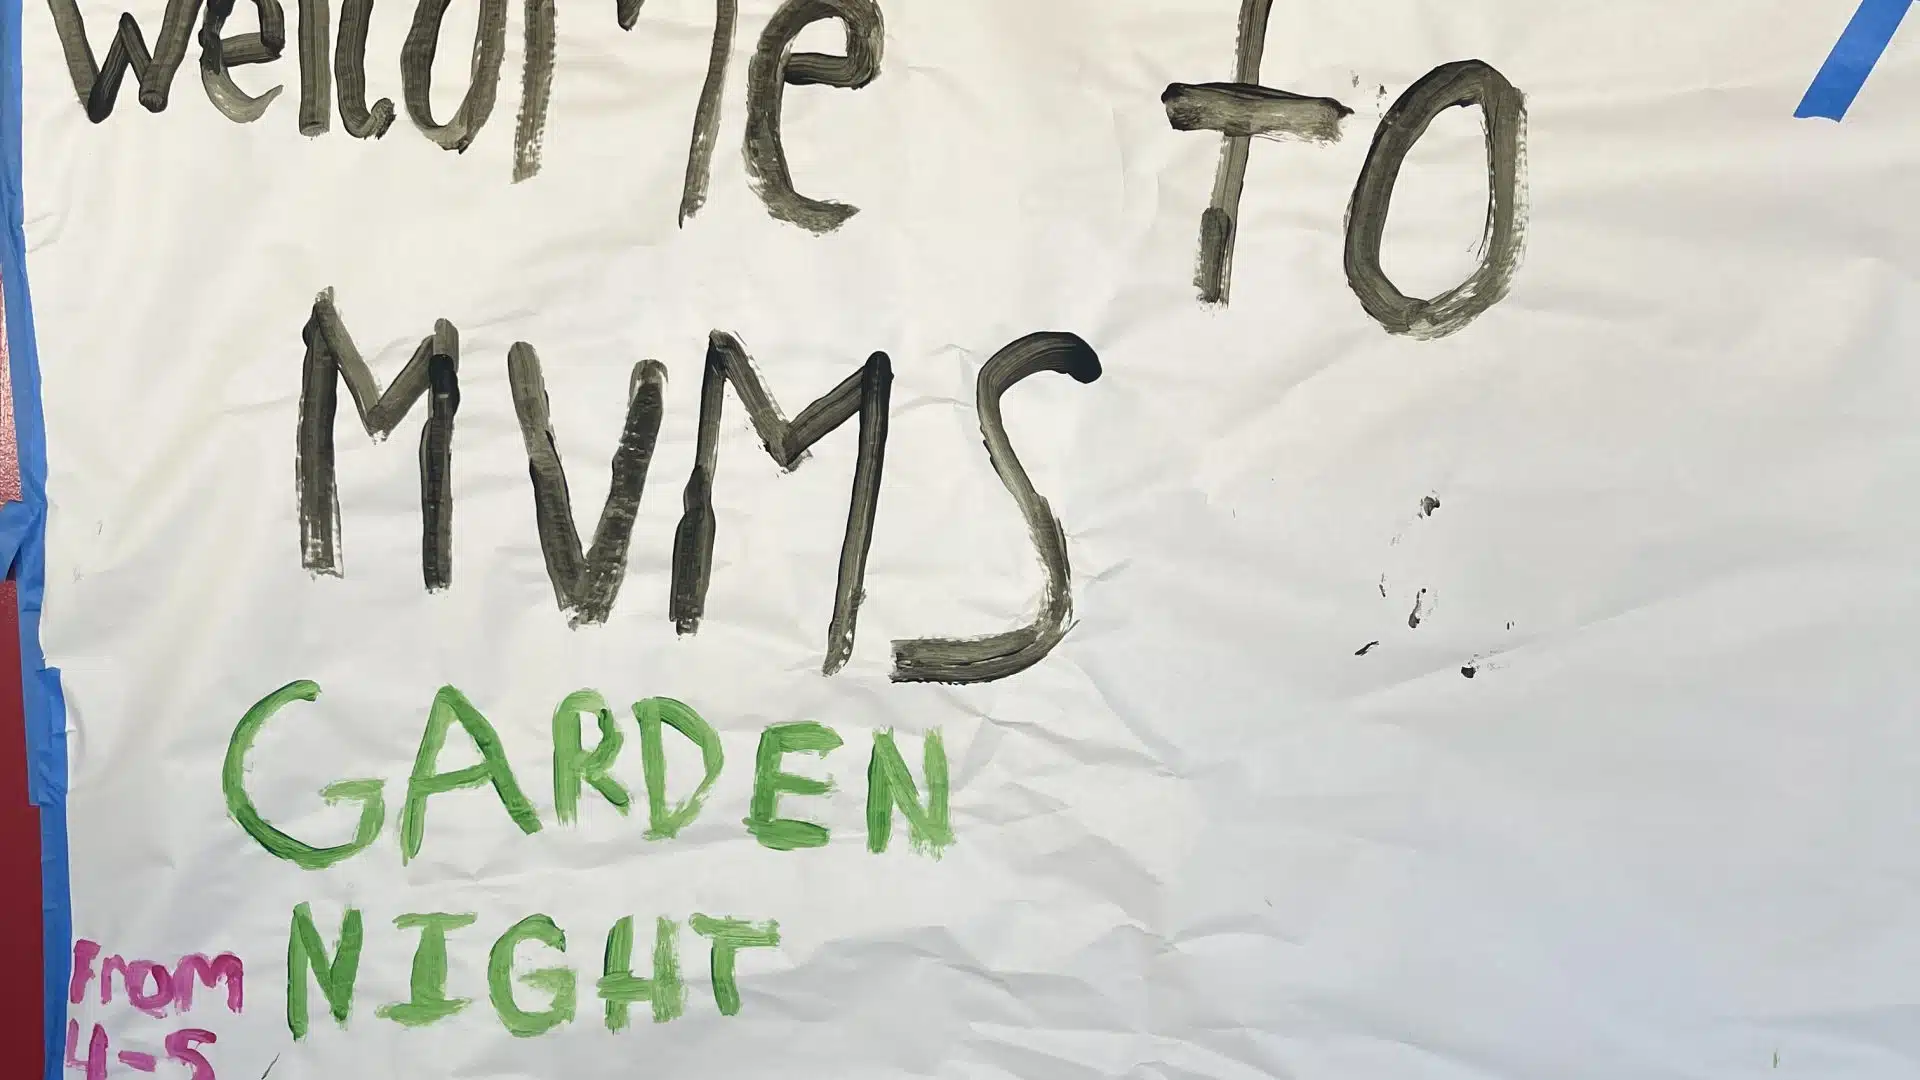 Welcome To
MVMS
GARDEN
NIGHT
From
4-5